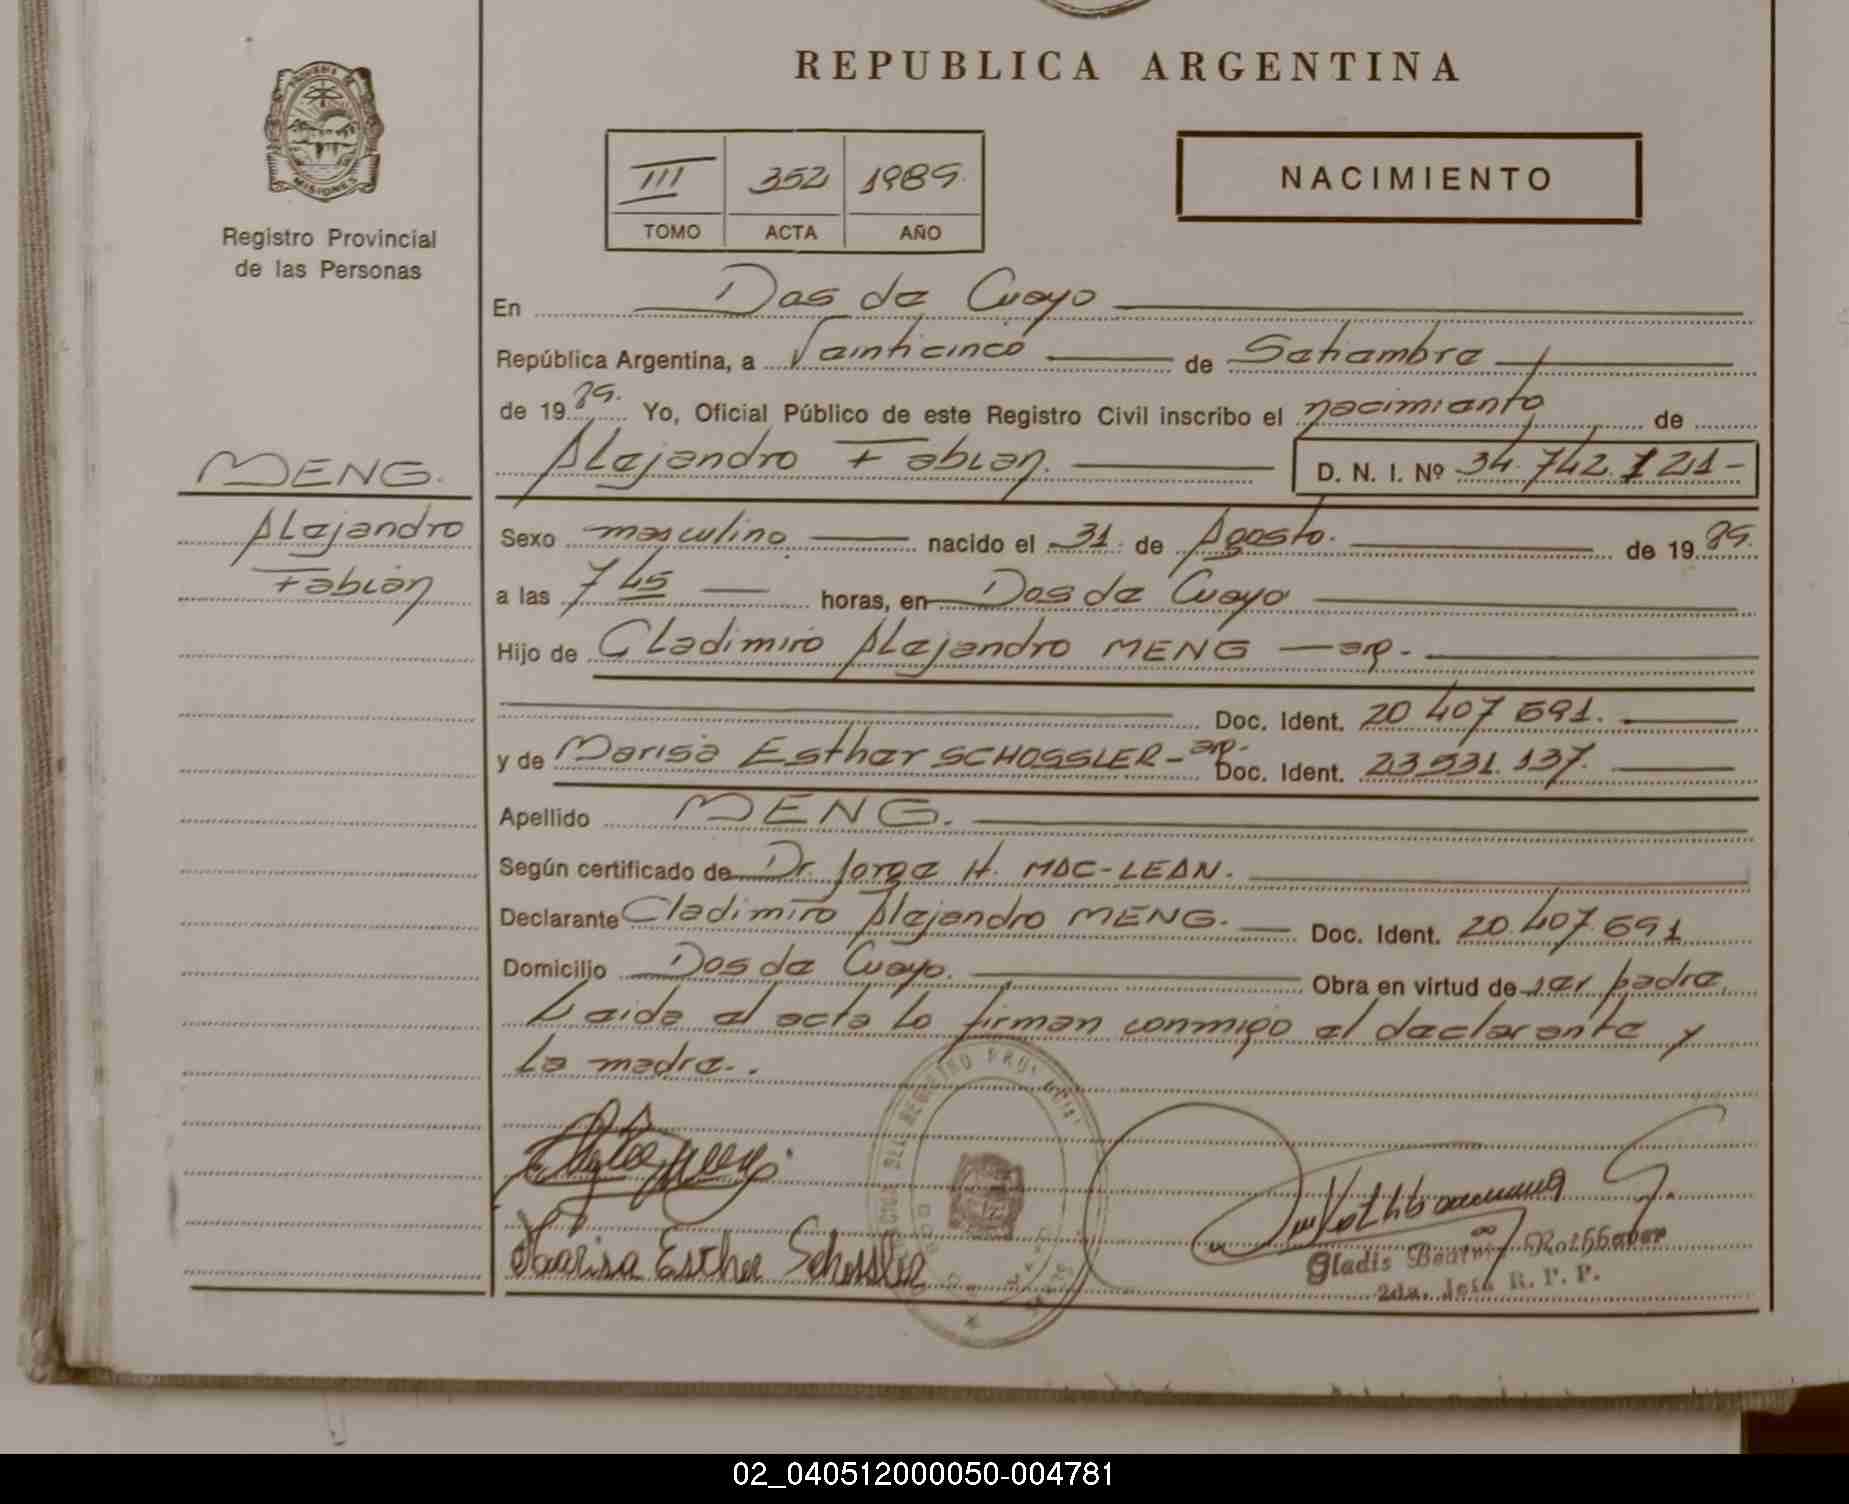 REPUBLICA ARGENTINA
PROVINCIA DE
MISIONES
Registro Provincial
de las Personas
III 352 1989.
TOMO ACTA AÑO
NACIMIENTO
En Dos de Mayo
República Argentina, a Veinticinco de Setiembre
de 1989. Yo, Oficial Público de este Registro Civil inscribo el nacimiento de
Alejandro Fabian. D. N. I. Nº 34.742.121-
MENG.
Alejandro
Fabián
Sexo masculino nacido el 31 de Agosto. de 1989.
a las 7 45 horas, en Dos de Mayo
Hijo de Cladimiro Alejandro MENG - arg. -
Doc. Ident. 20 407 691.
y de Marisa Esther SCHOSSLER - arg. - Doc. Ident. 23 931. 137.
Apellido MENG.
Según certificado de Dr. Jorge H. MAC-LEAN.
Declarante Cladimiro Alejandro MENG. Doc. Ident. 20.407.691
Domicilio Dos de Mayo. Obra en virtud de ser padre.
Leida el acta la firman conmigo el declarante y
la madre. .
Marisa Esther Schossler
Gladis Beatriz Rothbauer
2da. Jefa R. P. P.
02_040512000050-004781